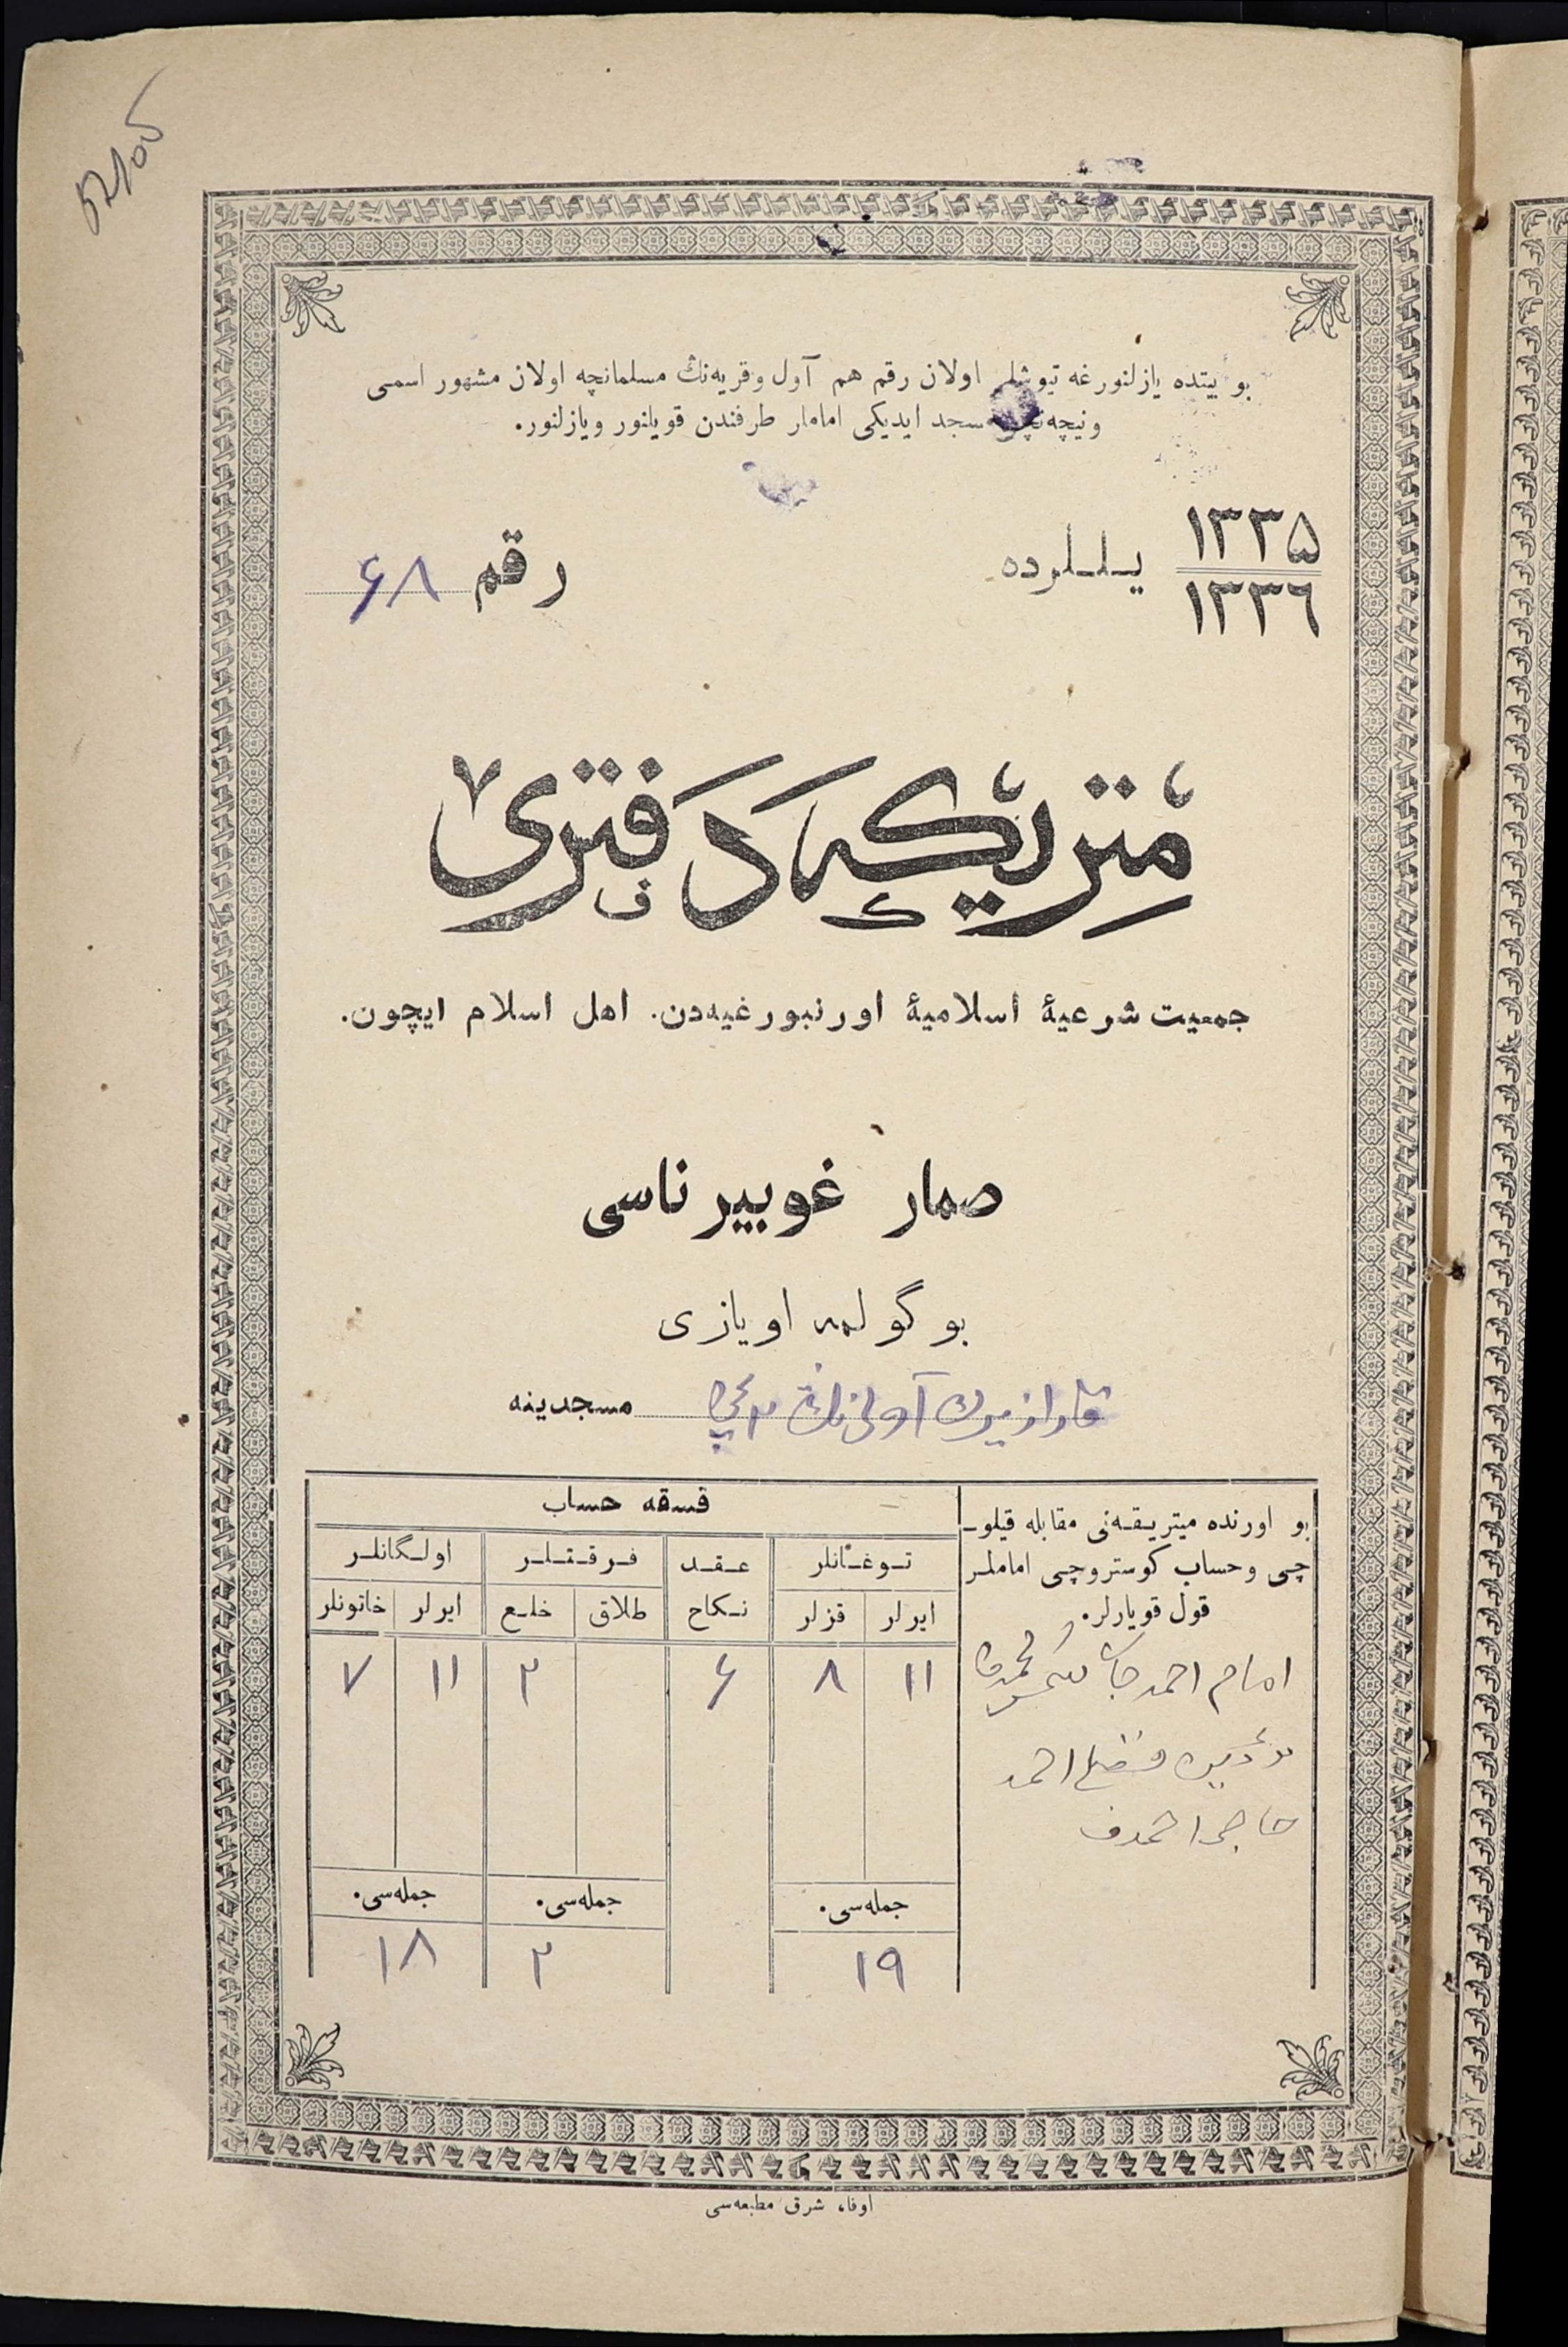 بو بیتده یازلنورغه تیوشلی اولان رقم هم آول و قریه‌نڭ مسلمانچه اولان مشهور اسمی
ونیچه‌نچی مسجد ایدیکی اماملر طرفندن قویلنور ویازلنور.
۱۳۳۵
۱۳۳٦
یـلـلـرده
رقم ۶۸
متریکه دفتری
جمعیت شرعیهٔ اسلامیهٔ اورنبورغیه‌دن. اهل اسلام ایچون.
صمار غوبیرناسی
بوگولمه اویازی
آولی‌نڭ ۲ نچی مسجدینه
بو اورنده میتریـقـه‌نی مقابله قیلو-
چی وحساب کوستروچی اماملـر
قول قویارلر.
امام احمد جان
احمد
حاجی احمدف
قسقه حساب
تـوغـانلر
عـقـد نـکاح
فـرقـتـلـر
اولـگانلـر
ایرلر
قزلر
طلاق
خلـع
ایرلر
خاتونلر
۱۱
۸
۶
۲
۱۱
۷
جمله‌سی.
جمله‌سی.
جمله‌سی.
۱۹
۲
۱۸
اوفا، شرق مطبعه‌سی